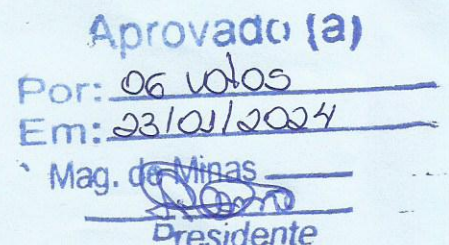 Aprovado (a)
Por: 06 votos
Em: 23/01/2024
Mag. de Minas
Presidente